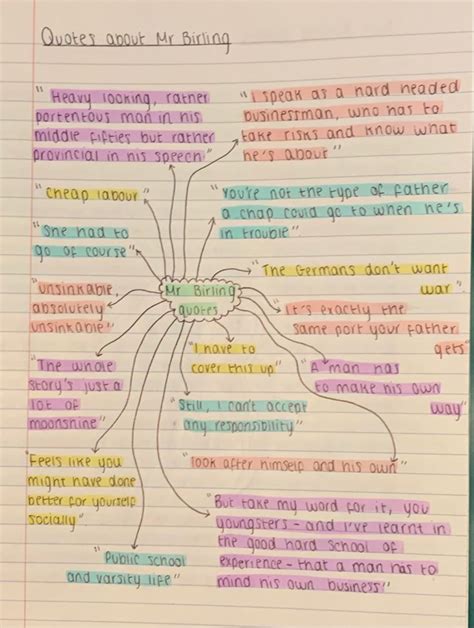 Quotes about Mr Birling
"Heavy looking, rather
portentous man in his
middle fifties but rather
provincial in his speech"
"I speak as a hard headed
businessman, who has to
take risks and know what
he's about"
"Cheap labour"
"You're not the type of father
a chap could go to when he's
in trouble"
"She had to
go of course"
"The Germans don't want
war"
"unsinkable,
absolutely
unsinkable"
Mr Birling
quotes
"It's exactly the
same port your father
gets"
"I have to
cover this up"
"The whole
story's just a
lot of
moonshine"
"A man has
to make his own
way"
"Still, I can't accept
any responsibility"
"look after himself and his own"
Feels like you
might have done
better for yourself
socially"
"But take my word for it, you
youngsters - and I've learnt in
the good hard school of
experience - that a man has to
mind his own business"
"Public school
and varsity life"